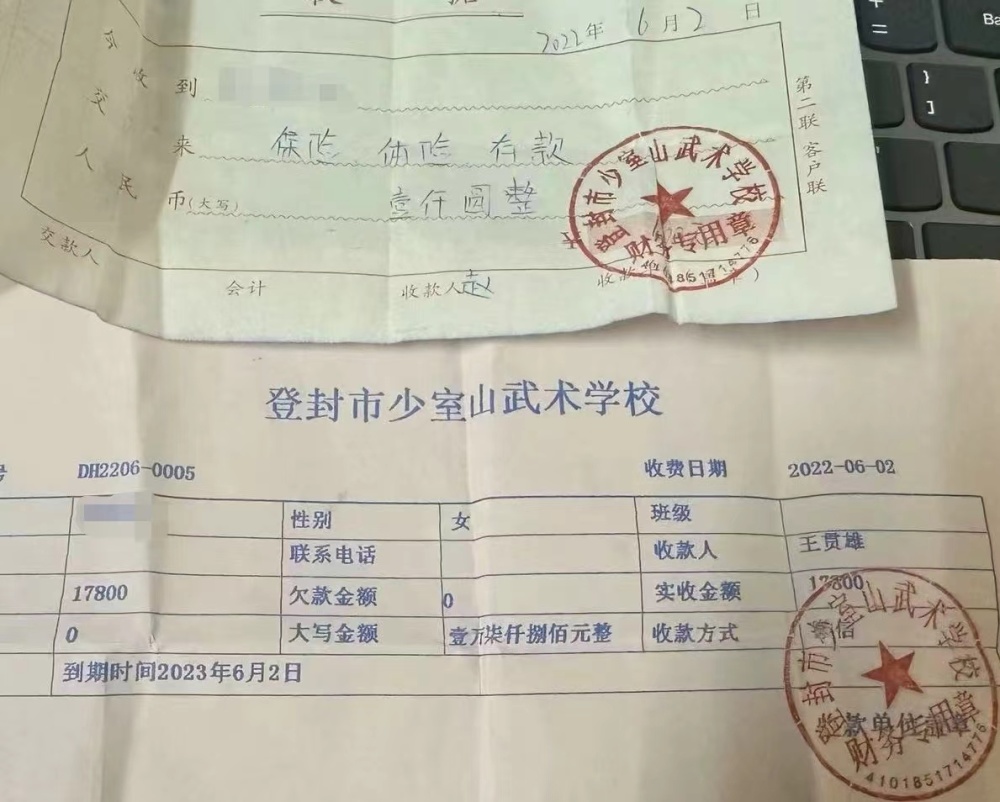 2022年6月2日
今收到
来 保险 体险 存款
交人民币(大写) 壹仟圆整
第二联 客户联
交款人
会计 收款人 赵 收款
登封市少室山武术学校
财务专用章
登封市少室山武术学校
号 DH2206-0005 收费日期 2022-06-02
性别 女 班级
联系电话 收款人 王贯雄
17800 欠款金额 0 实收金额 17800
0 大写金额 壹万柒仟捌佰元整 收款方式 微信
到期时间2023年6月2日
登封市少室山武术学校
款单位
财务专用章
4101851714776
}
]